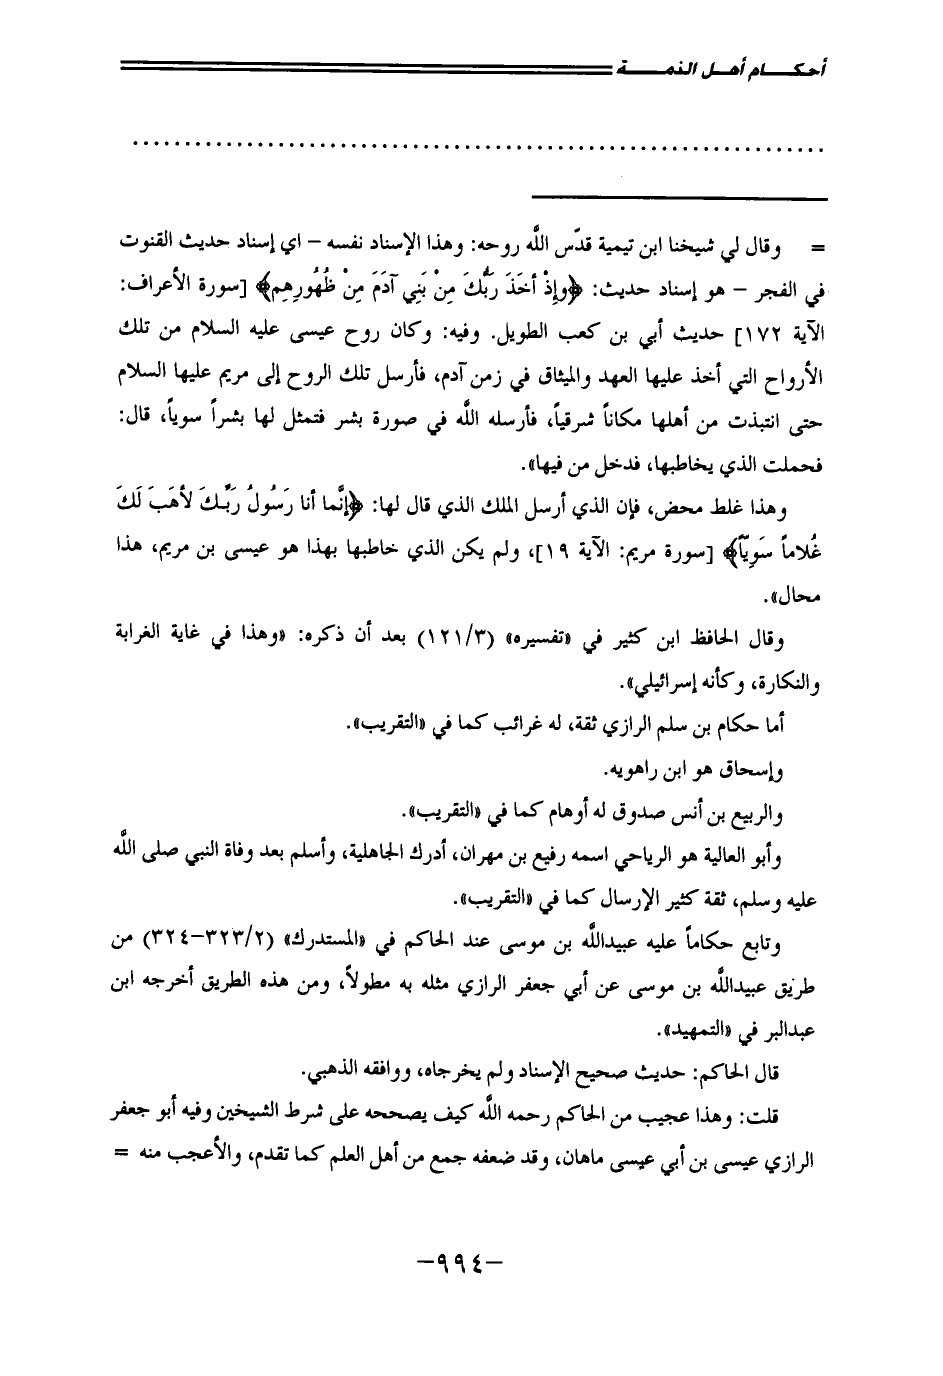 أحكـــام أهـل الذمـــة
= وقال لي شيخنا ابن تيمية قدّس اللَّه روحه: وهذا الإسناد نفسه – اي إسناد حديث القنوت
في الفجر – هو إسناد حديث: ﴿وإِذْ أخَذَ رَبُّكَ مِنْ بَنِي آدَمَ مِنْ ظُهُورِهِم﴾ [سورة الأعراف:
الآية ١٧٢] حديث أبي بن كعب الطويل. وفيه: وكان روح عيسى عليه السلام من تلك
الأرواح التي أخذ عليها العهد والميثاق في زمن آدم، فأرسل تلك الروح إلى مريم عليها السلام
حتى انتبذت من أهلها مكاناً شرقياً، فأرسله اللَّه في صورة بشر فتمثل لها بشراً سوياً، قال:
فحملت الذي يخاطبها، فدخل من فيها».
وهذا غلط محض، فإن الذي أرسل الملك الذي قال لها: ﴿إِنَّما أنا رَسُولُ رَبِّكَ لأهَبَ لَكَ
غُلاماً سَوِيّاً﴾ [سورة مريم: الآية ١٩]، ولم يكن الذي خاطبها بهذا هو عيسى بن مريم، هذا
محال».
وقال الحافظ ابن كثير في «تفسيره» (١٢١/٣) بعد أن ذكره: «وهذا في غاية الغرابة
والنكارة، وكأنه إسرائيلي».
أما حكام بن سلم الرازي ثقة، له غرائب كما في «التقريب».
وإسحاق هو ابن راهويه.
والربيع بن أنس صدوق له أوهام كما في «التقريب».
وأبو العالية هو الرياحي اسمه رفيع بن مهران، أدرك الجاهلية، وأسلم بعد وفاة النبي صلى اللَّه
عليه وسلم، ثقة كثير الإرسال كما في «التقريب».
وتابع حكاماً عليه عبيداللَّه بن موسى عند الحاكم في «المستدرك» (٣٢٣/٢–٣٢٤) من
طريق عبيداللَّه بن موسى عن أبي جعفر الرازي مثله به مطولاً، ومن هذه الطريق أخرجه ابن
عبدالبر في «التمهيد».
قال الحاكم: حديث صحيح الإسناد ولم يخرجاه، ووافقه الذهبي.
قلت: وهذا عجيب من الحاكم رحمه اللَّه كيف يصححه على شرط الشيخين وفيه أبو جعفر
الرازي عيسى بن أبي عيسى ماهان، وقد ضعفه جمع من أهل العلم كما تقدم، والأعجب منه =
–٩٩٤–